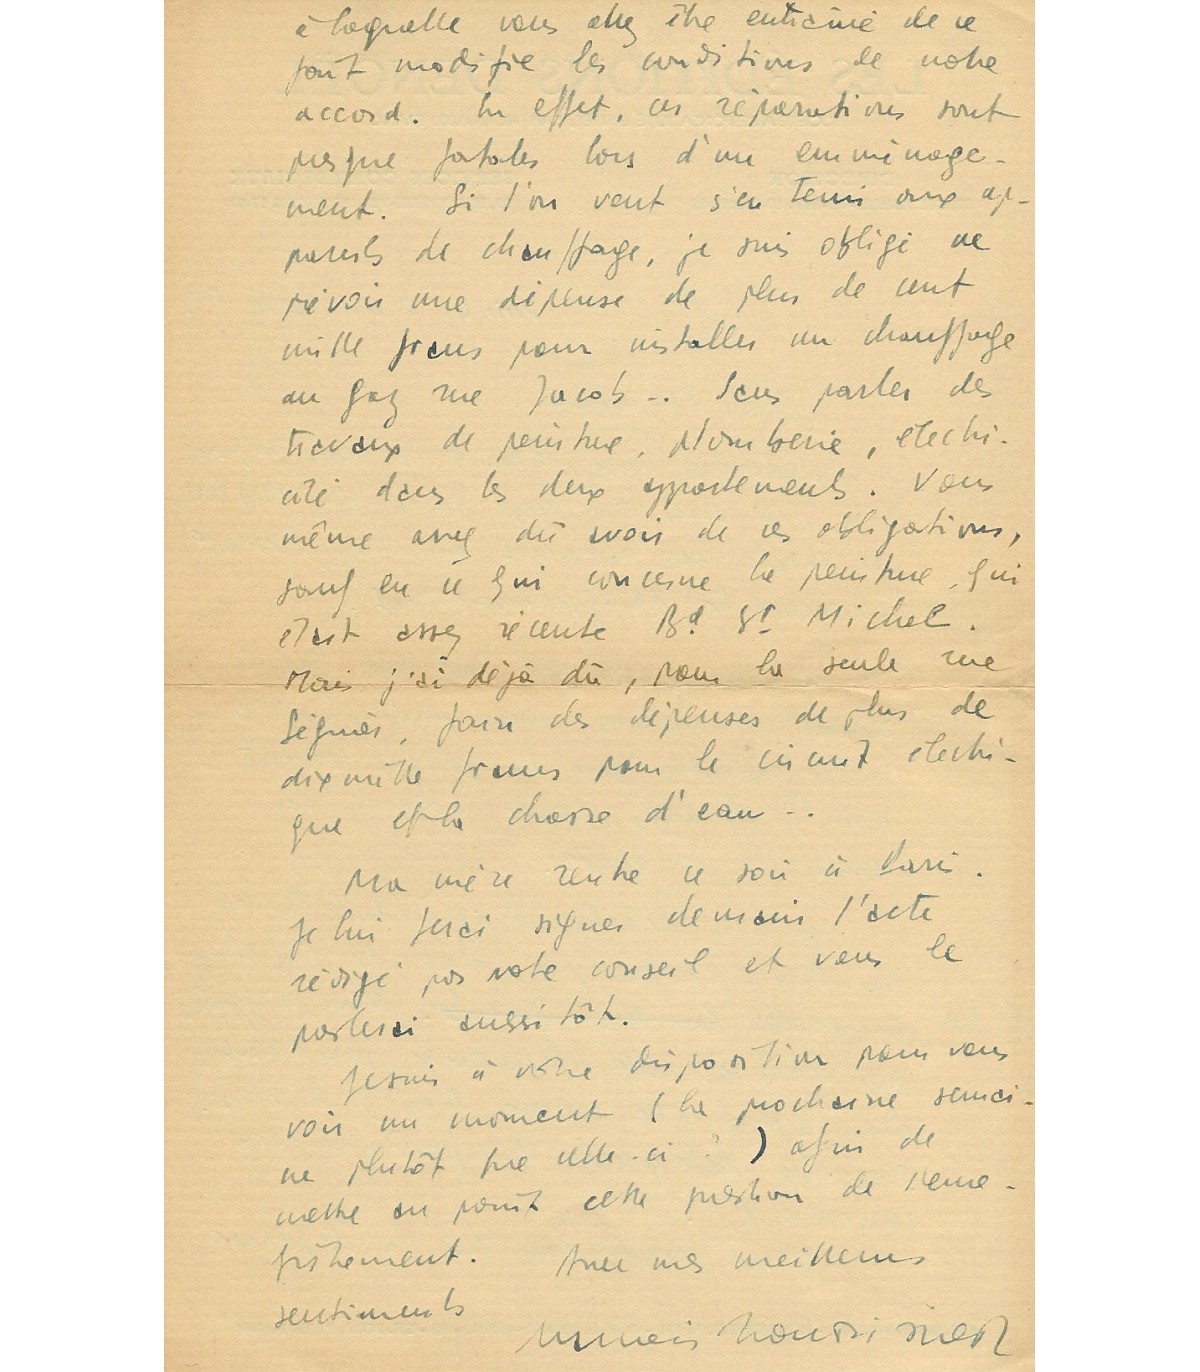 à laquelle vous allez être entraîné de ce
fait modifie les conditions de notre
accord. En effet, ces réparations sont
presque fatales lors d'un emménage-
ment. Si l'on veut s'en tenir aux ap-
pareils de chauffage, je suis obligé de
prévoir une dépense de plus de cent
mille francs pour installer un chauffage
au gaz rue Jacob.. Sans parler des
travaux de peinture, plomberie, électri-
cité dans les deux appartements. Vous
même avez dû avoir de ces obligations,
sauf en ce qui concerne la peinture, qui
était assez récente Bd. St. Michel.
Mais j'ai déjà dû, pour la seule rue
Séguier, faire des dépenses de plus de
dix mille francs pour le circuit électri-
que et la chasse d'eau..
Ma mère rentre ce soir à Paris.
Je lui ferai signer demain l'acte
rédigé par votre conseil et vous le
porterai aussitôt.
Je suis à votre disposition pour vous
voir un moment (la prochaine semai-
ne plutôt que celle-ci ?) afin de
mettre au point cette question de
Avec mes meilleurs
sentiments